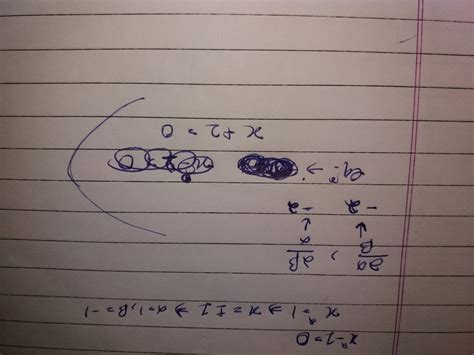 x²-1=0
x²=1 ⇒ x=±1 ⇒ α=1, β=-1
2α/β , 2β/α
↓ ↓
-2 -2
eqⁿ →
x+2=0